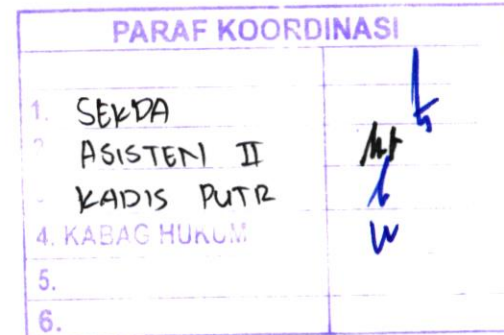 PARAF KOORDINASI
1. SEKDA
ASISTEN II
KADIS PUTR
4. KABAG HUKUM
5.
6.